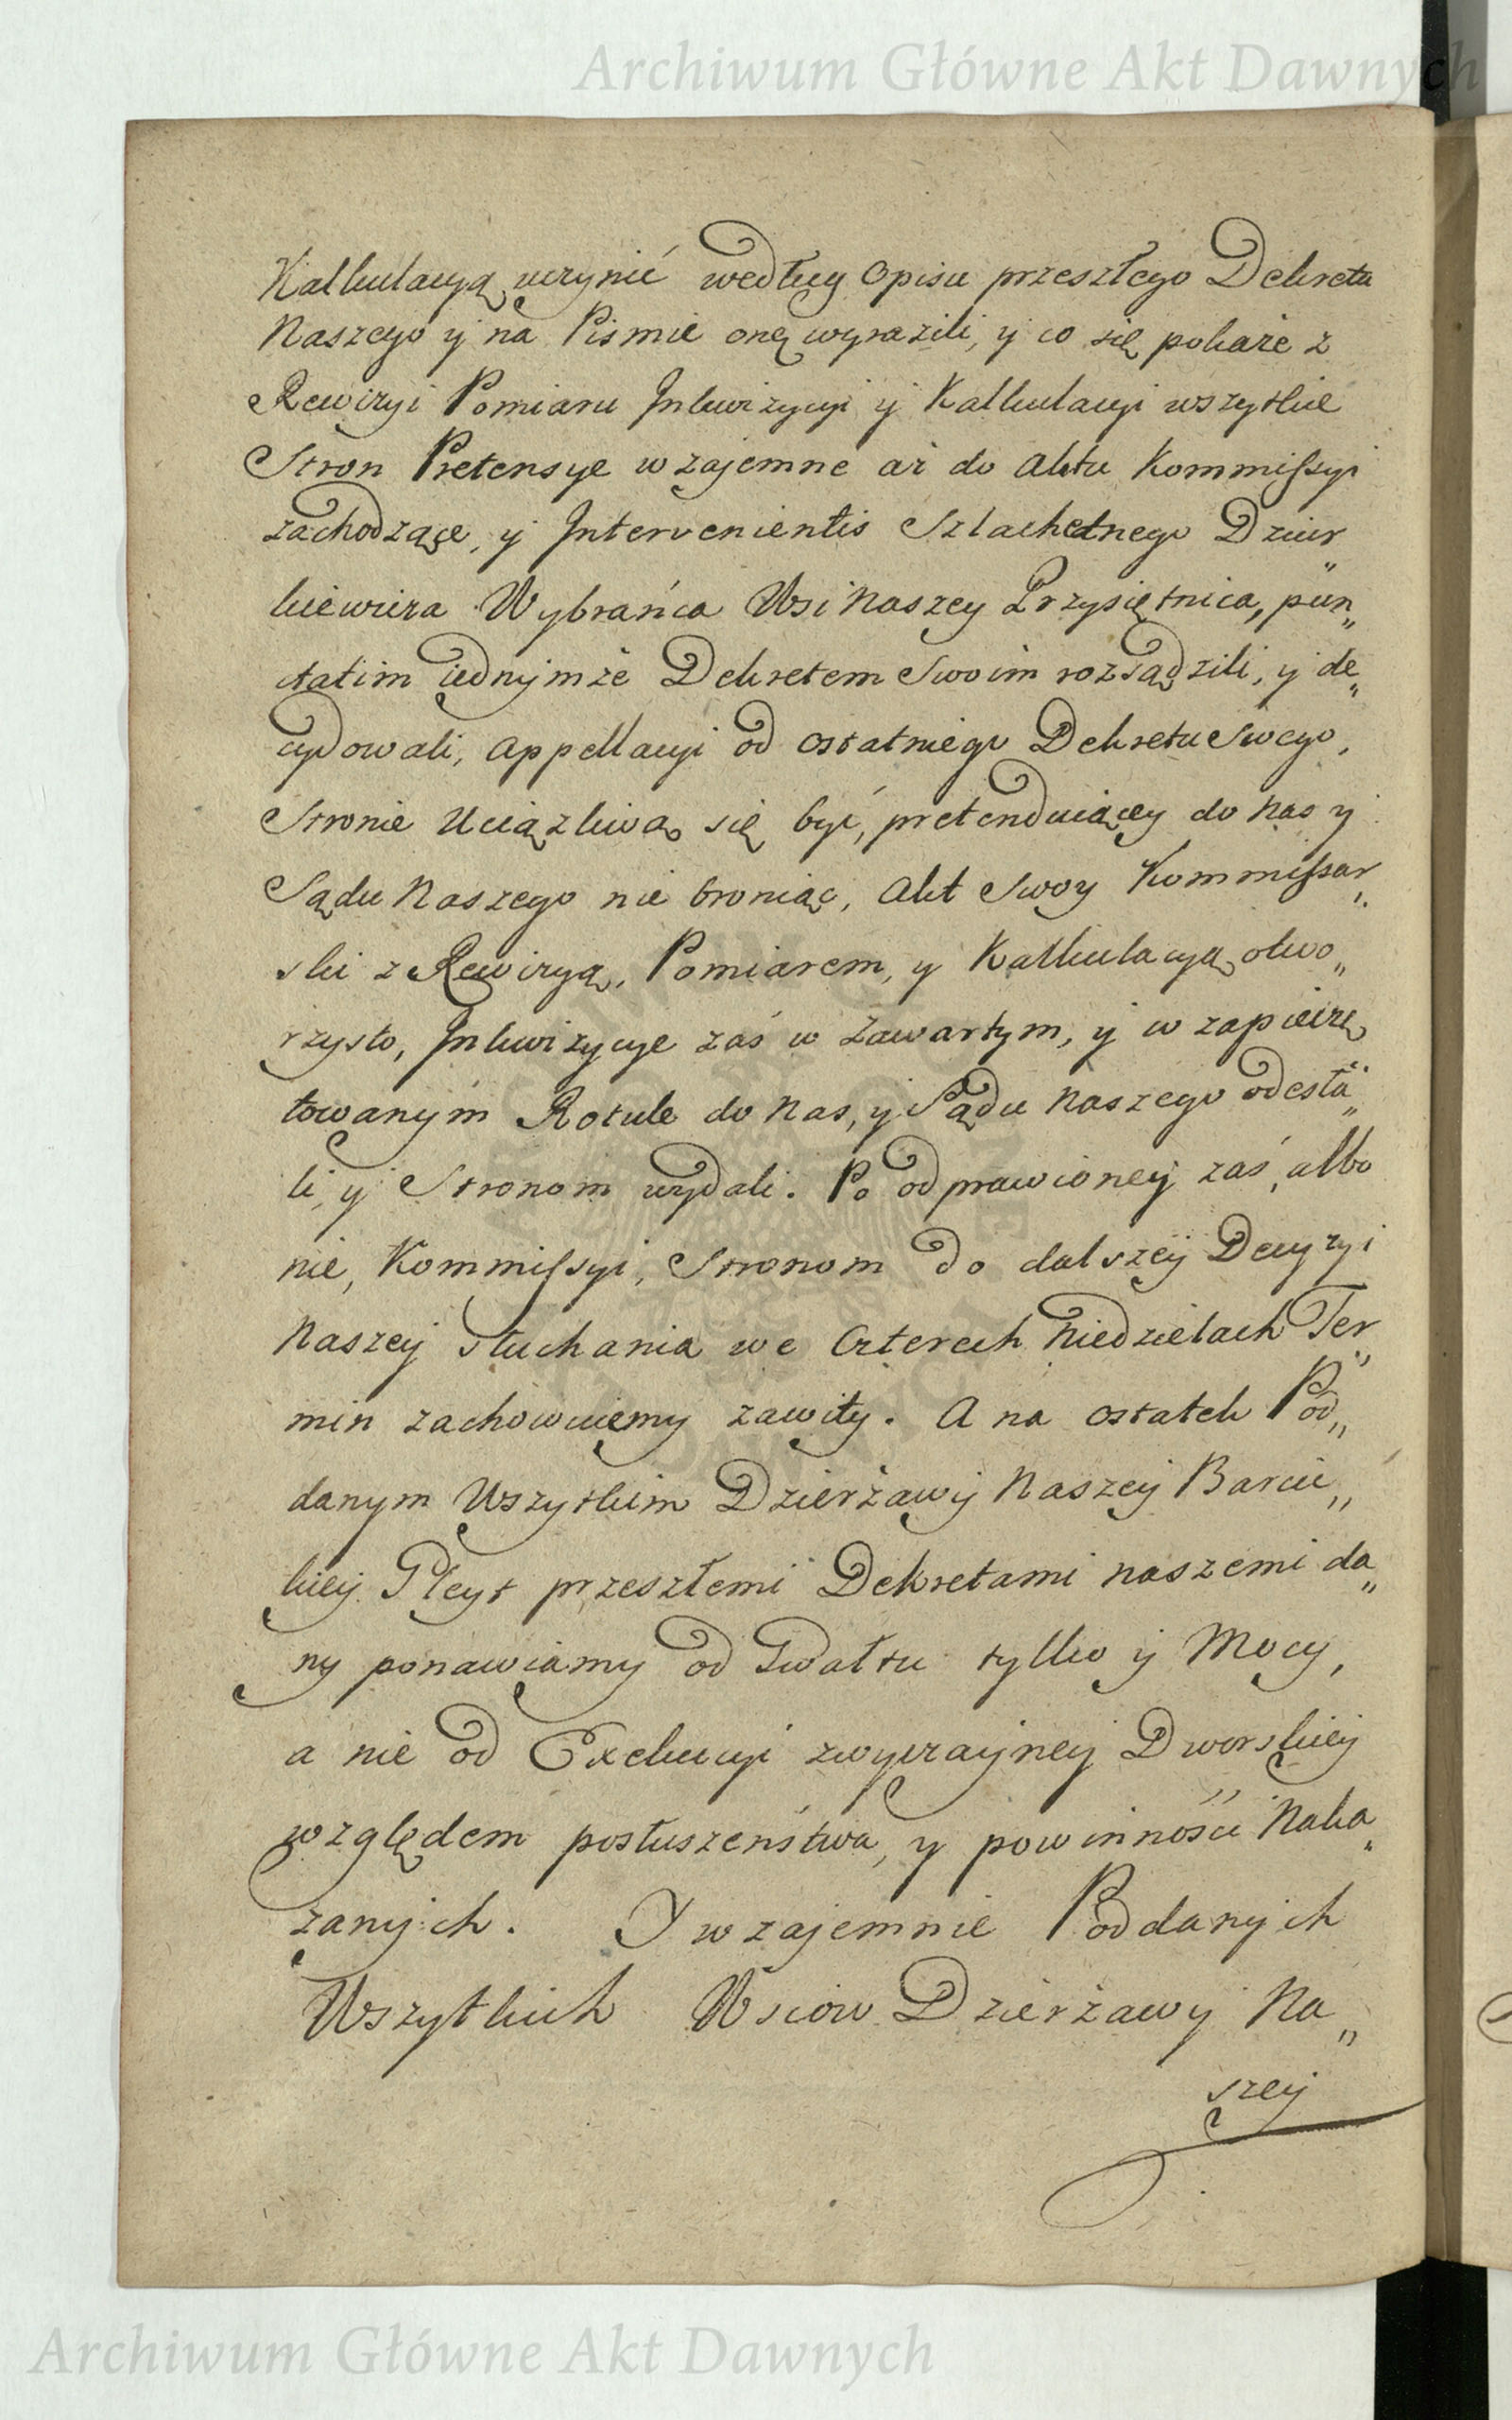 Archiwum Główne Akt Dawnych
Kalkulacyą uczynić według Opisu przeszłego Dekretu
Naszego y na Pismie onę wyrazili, y co się pokaże z
Rewizyi Pomiaru Inkwizycyi y Kalkulacyi wszytkie
Stron Pretensye wzajemne aż do Aktu Kommissyi
zachodzące, y Intervenientis Szlachetnego Dzier„
kiewicza Wybrańca Wsi Naszey Przysiętnica, pun„
ctatim iednymże Dekretem Swoim rozsądzili, y de„
cydowali, Appellacyi od ostatniego Dekretu Swego,
Stronie Uciążliwą się być, pretenduiącey do Nas y
Sądu Naszego nie broniąc, Akt Swoy Kommissar„
ski z Rewizyą, Pomiarem, y Kalkulacyą otwo„
rzysto, Inkwizycye zaś w Zawartym, y w zapieczę
towanym Rotule do Nas, y Sądu Naszego odesła„
li, y Stronom wydali. Po odprawioney zaś, albo
nie, Kommissyi, Stronom do dalszey Decyzyi
Naszey słuchania we Czterech Niedzielach Ter„
min zachowuiemy zawity. A na ostatek Pod„
danym Wszytkim Dzierżawy Naszey Barcic„
kiey Gleyt przeszłemi Dekretami naszemi da„
ny ponawiamy od Gwałtu tylko y Mocy,
a nie od Exekucyi zwyczayney Dworskiey
względem posłuszeństwa, y powinności Naka„
zanych. Y wzajemnie Poddanych
Wszytkich Wsiow Dzierżawy Na„
szey
Archiwum Główne Akt Dawnych